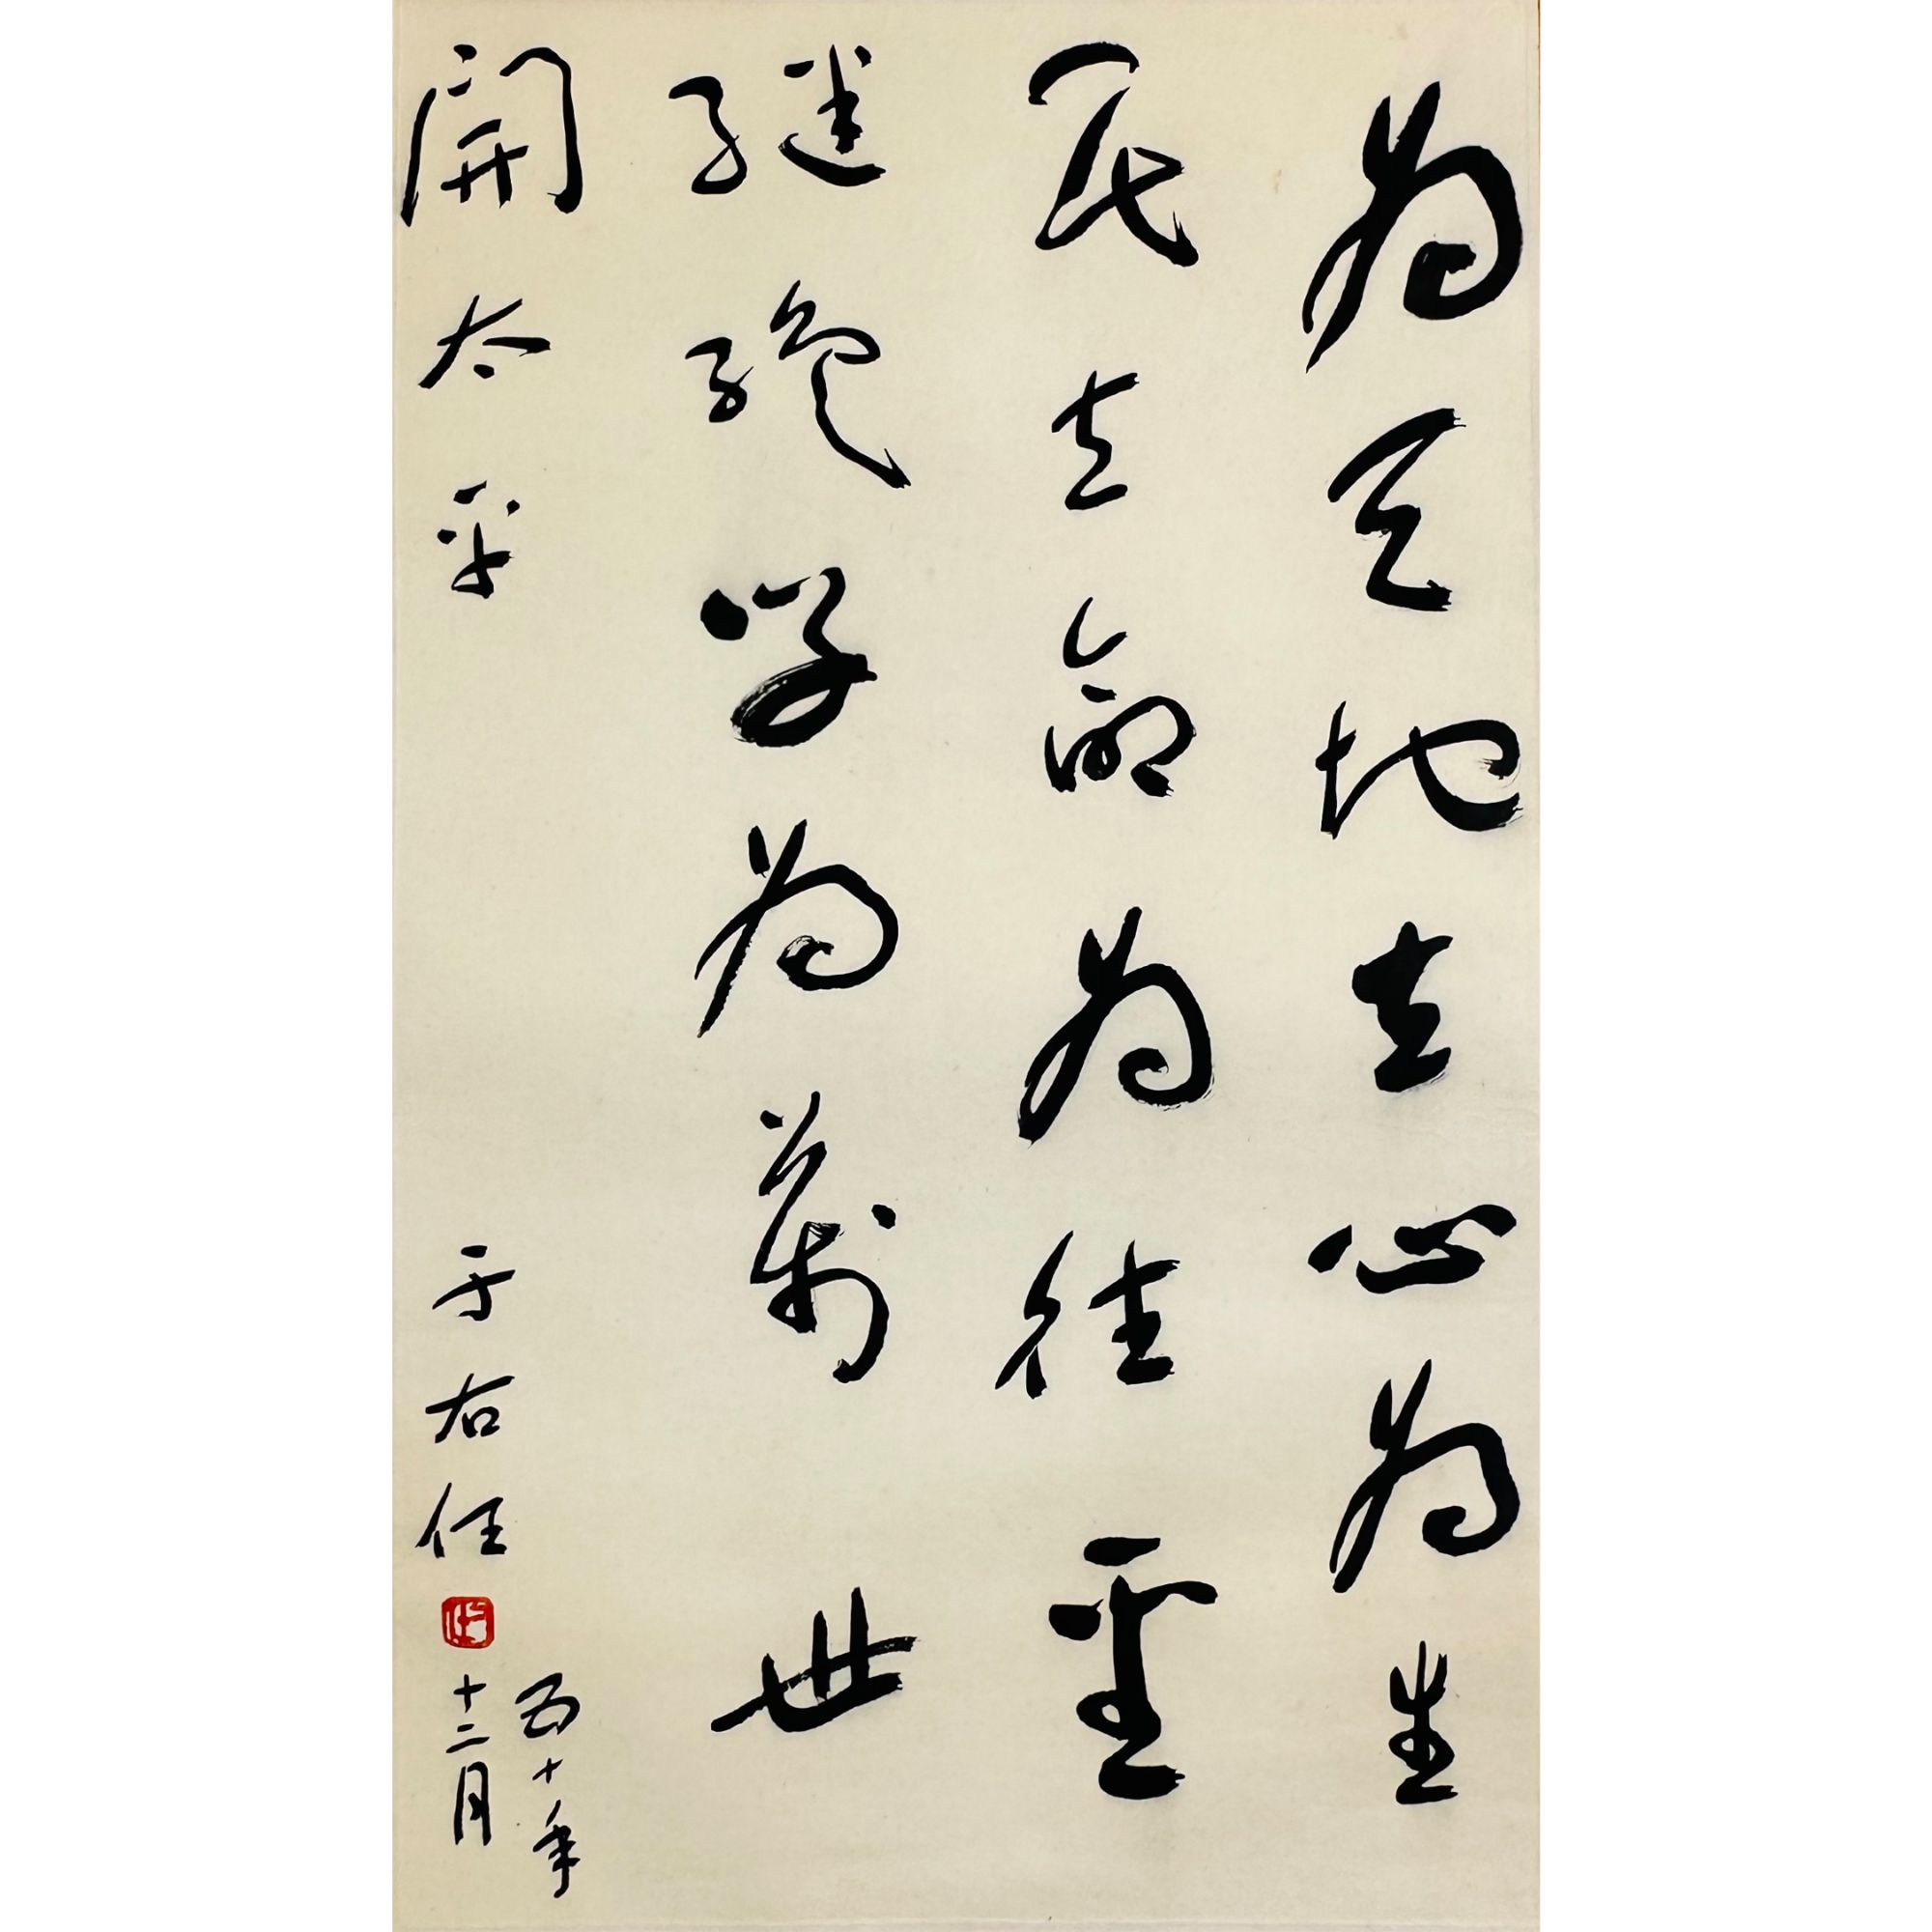 為天地立心為生
民立命為往聖
繼絕學為萬世
開太平
于右任
五十年
十二月